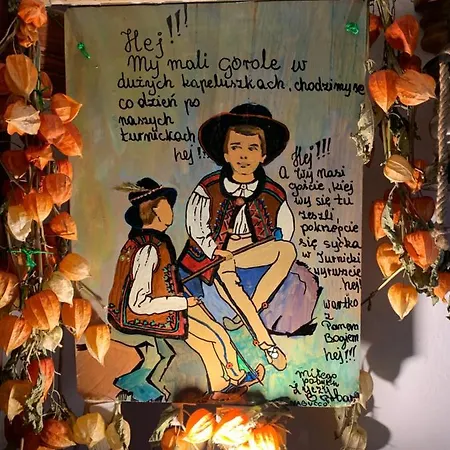 Hej!!!
My mali górole w
dużych kapeluszkach, chodzimy se
co dzień po
naszych
turnickach
hej!!!
Hej!!!
A wy nasi
goście, kiej
wy się tu
zeszli
pokrzepcie
się sycka
w Turnicki
wyruszcie
hej
wartko
z
Panem
Bogiem
hej!!!
Miłego
pobytu
życzy